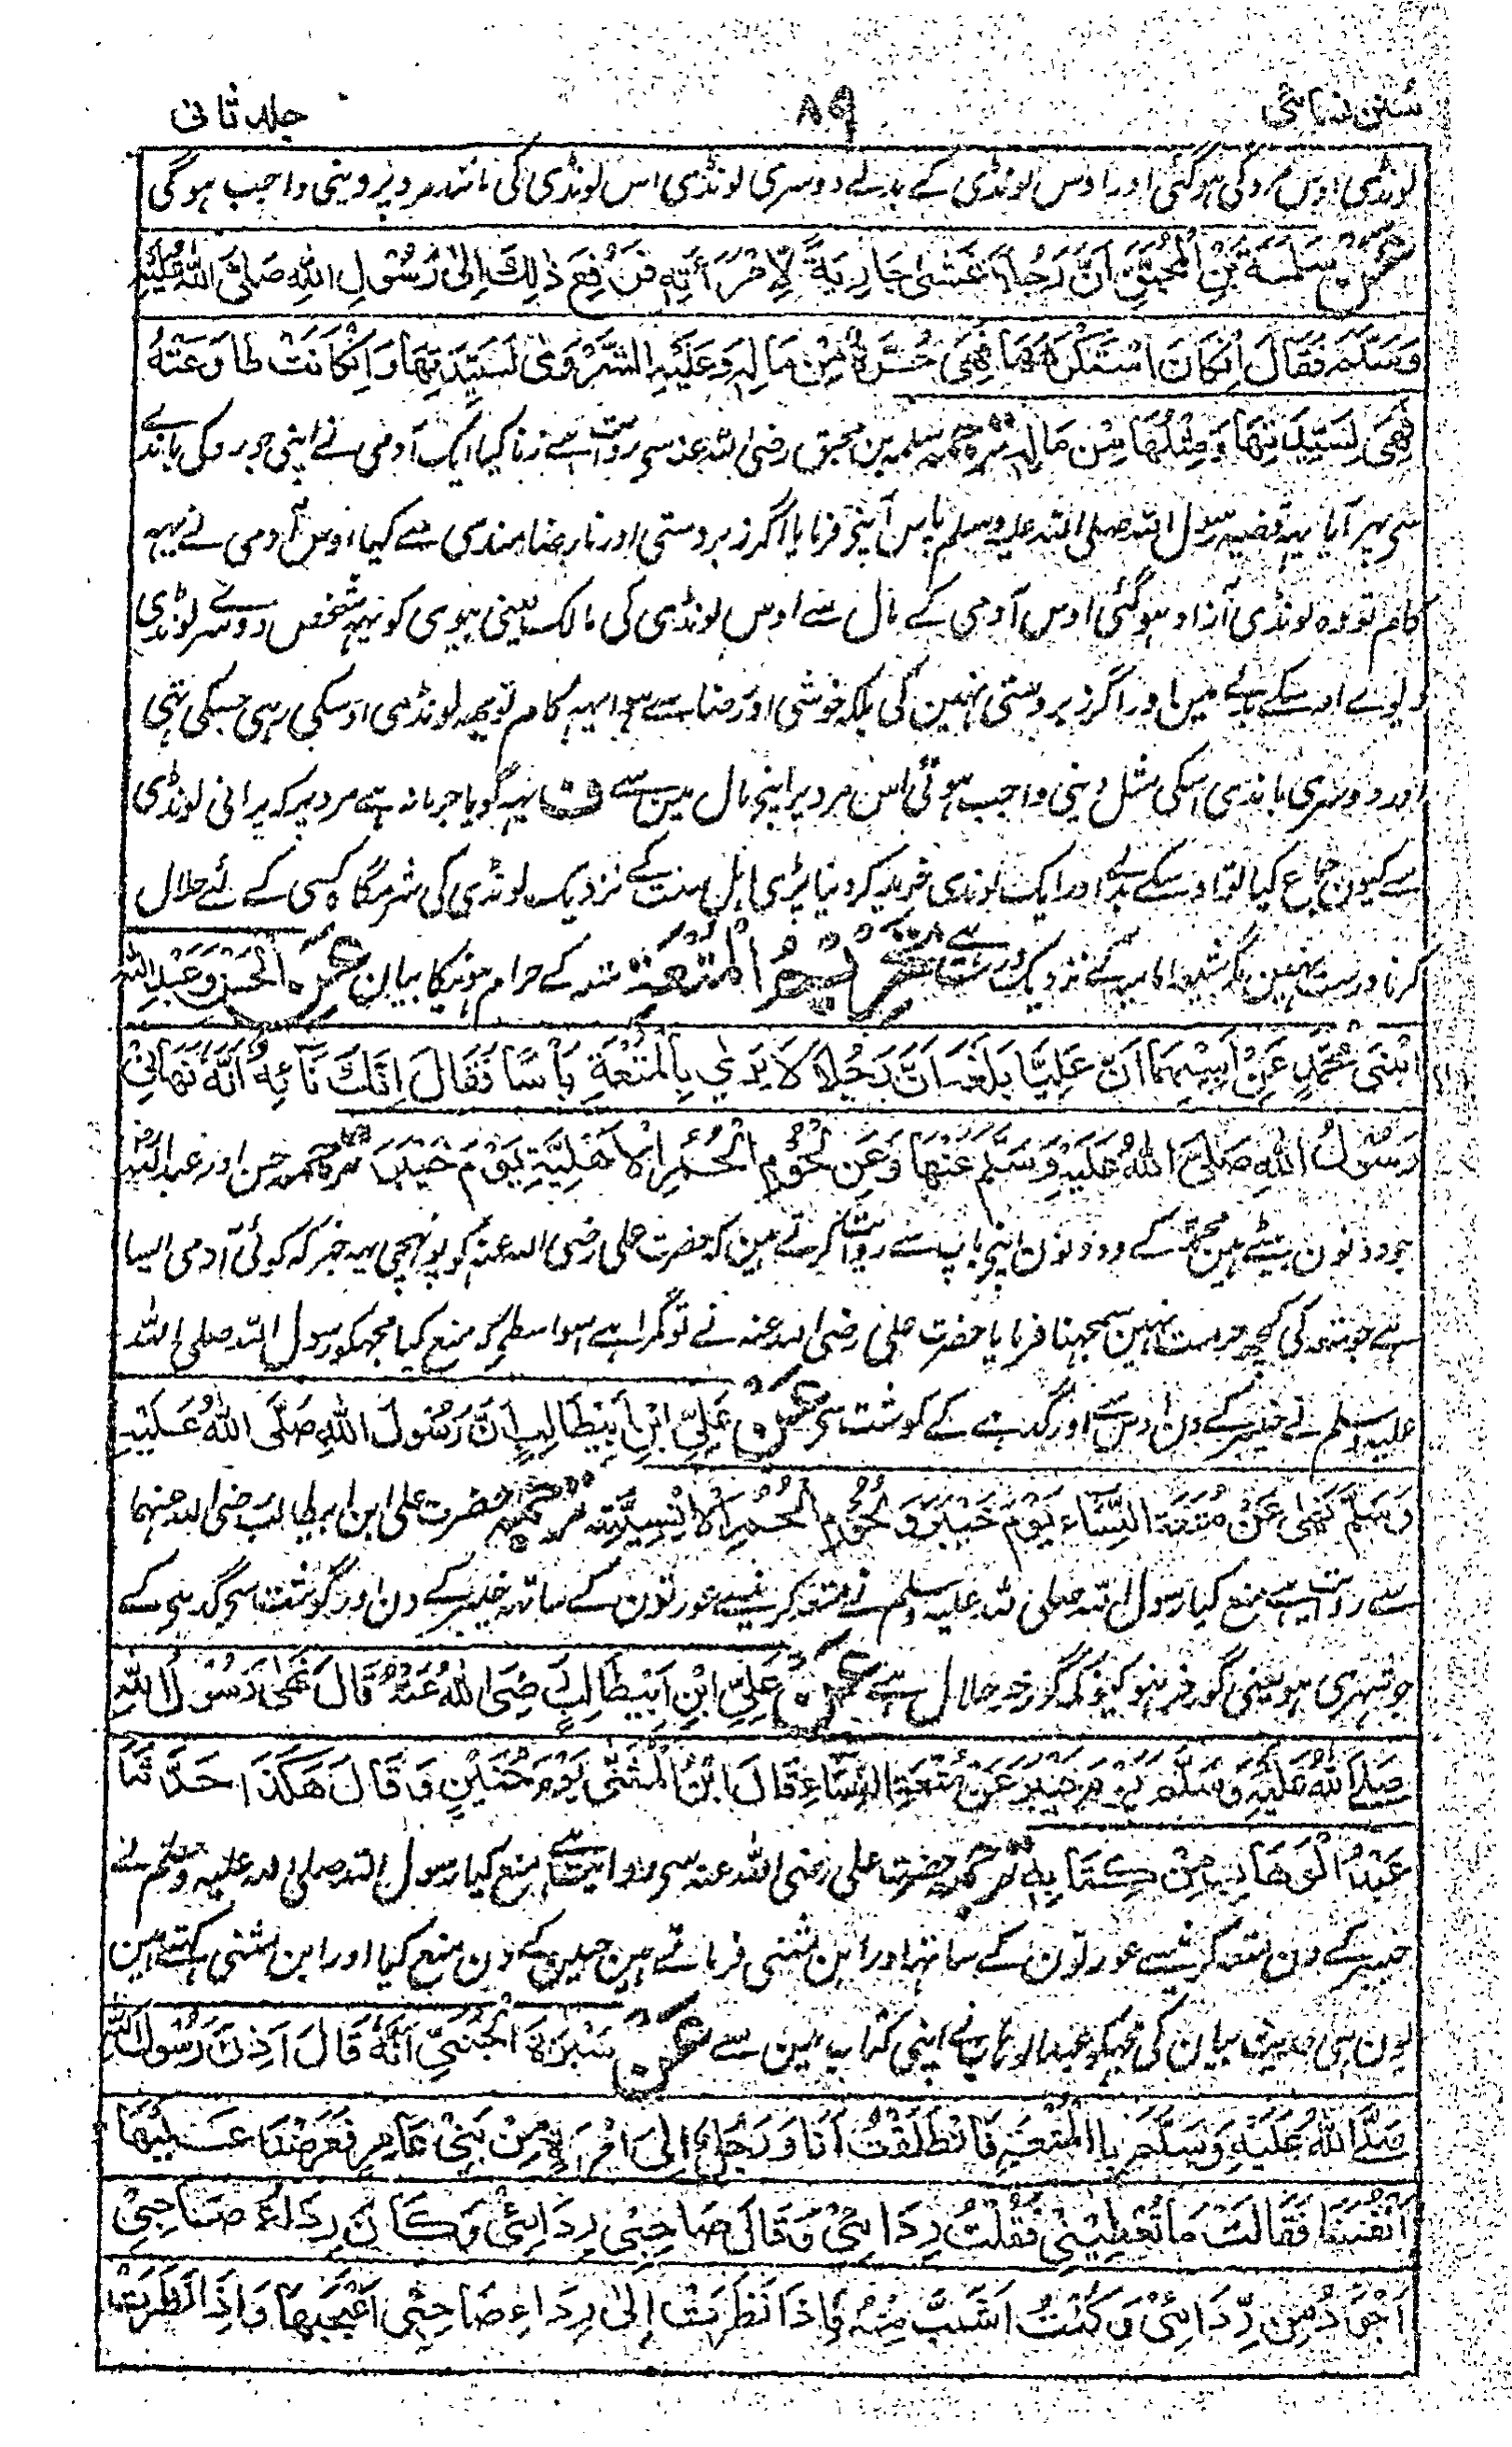 سنن نسائی ۸۹ جلد ثانی
لونڈی اوس مرد کی ہوگئی اور اوس لونڈی کے بدلے دوسری لونڈی اس لونڈی کی مانند مرد پر دینی واجب ہوگی
عَنْ سَلَمَةَ بْنِ الْمُحَبَّقِ اَنَّ رَجُلًا غَشٰى جَارِيَةً لِّاِمْرَأَتِهٖ فَرُفِعَ ذٰلِكَ اِلٰى رَسُوْلِ اللهِ صَلَّى اللهُ عَلَيْهِ
وَسَلَّمَ فَقَالَ اِنْكَانَ اسْتَكْرَهَهَا فَهِيَ حُرَّةٌ مِّنْ مَالِهٖ وَعَلَيْهِ الشَّرْوٰى لِسَيِّدَتِهَا وَاِنْكَانَتْ طَاوَعَتْهُ
فَهِيَ لِسَيِّدَتِهَا وَمِثْلُهَا مِنْ مَالِهٖ ترجمہ سلمہ بن محبق رضی اللہ عنہ سی روایت ہے زنا کیا ایک آدمی نے اپنی جورو کی باندے
سی پہر آیا یہ قضیہ رسول اللہ صلی اللہ علیہ وسلم پاس آپنے فرمایا اگر زبردستی اور نارضامندی سے کیا اوس آدمی نے یہہ
کام تو وہ لونڈی آزاد ہوگئی اوس آدمی کے مال سے اوس لونڈی کی مالک یعنی بیوی کو یہہ شخص دوسرے لونڈی
دلوے اوسکے بدلے مین اور اگر زبردستی نہین کی بلکہ خوشی اور رضا سے ہوا یہہ کام تو یہہ لونڈی اوسکی رہی جسکی تہی
اور دوسری باندی اسکی مثل دینی واجب ہوئی اس مرد پر اپنے مال مین سے ف یہہ گویا جرمانہ ہے مرد پر کہ پرانی لونڈی
سے کیون جماع کیا تو اوسکے بدلے اور ایک لونڈی خرید کر دینا پڑی اہل سنت کے نزدیک لونڈی کی شرمگاہ کسی کے لئے حلال
کرنا درست نہین مگر شیعہ امامیہ کے نزدیک درست ہے تَحْرِيْمُ الْمُتْعَةِ متعہ کے حرام ہونیکا بیان عَنِ الْحَسَنِ وَعَبْدِ اللهِ
ابْنَيْ مُحَمَّدٍ عَنْ اَبِيْهِمَا اَنَّ عَلِيًّا بَلَغَهُ اَنَّ رَجُلًا لَا يَرٰى بِالْمُتْعَةِ بَاْسًا فَقَالَ اِنَّكَ تَائِهٌ اَنَّهٗ نَهَانِيْ
رَسُوْلُ اللهِ صَلَّى اللهُ عَلَيْهِ وَسَلَّمَ عَنْهَا وَعَنْ لُحُوْمِ الْحُمُرِ الْاَهْلِيَّةِ يَوْمَ خَيْبَرَ ترجمہ حسن اور عبد اللہ
جو دونون بیٹے ہین محمد کے وہ دونون اپنے باپ سے روایت کرتے ہین کہ حضرت علی رضی اللہ عنہ کو پونہچی یہہ خبر کہ کوئی آدمی ایسا
ہے جو متعہ کی کچھ حرمت نہین سمجہتا فرمایا حضرت علی رضی اللہ عنہ نے تو گمراہ ہے اسواسطے کہ منع کیا مجہکو رسول اللہ صلی اللہ
علیہ وسلم نے خیبر کے دن اوس سے اور گدہے کے گوشت سی عَنْ عَلِيِّ ابْنِ اَبِيْطَالِبٍ اَنَّ رَسُوْلَ اللهِ صَلَّى اللهُ عَلَيْهِ
وَسَلَّمَ نَهٰى عَنْ مُتْعَةِ النِّسَاءِ يَوْمَ خَيْبَرَ وَلُحُوْمِ الْحُمُرِ الْاِنْسِيَّةِ ترجمہ حضرت علی ابن ابیطالب رضی اللہ عنہما
سے روایت ہے منع کیا رسول اللہ صلی اللہ علیہ وسلم نے متعہ کرنیسے عورتون کے ساتہہ خیبر کے دن اور گوشت سی گدہی کے
جو شہری ہو یعنی گورخر نہو کیونکہ گورخر حلال ہے عَنْ عَلِيِّ ابْنِ اَبِيْطَالِبٍ رَضِيَ اللهُ عَنْهُ قَالَ نَهٰى رَسُوْلُ اللهِ
صَلَّى اللهُ عَلَيْهِ وَسَلَّمَ يَوْمَ خَيْبَرَ عَنْ مُتْعَةِ النِّسَاءِ قَالَ ابْنُ الْمُثَنّٰى يَوْمَ حُنَيْنٍ وَقَالَ هٰكَذَا حَدَّثَنَا
عَبْدُ الْوَهَّابِ مِنْ كِتَابِهٖ ترجمہ حضرت علی رضی اللہ عنہ سی روایت ہے منع کیا رسول اللہ صلی اللہ علیہ وسلم نے
خیبر کے دن متعہ کرنیسے عورتون کے ساتہہ اور ابن مثنی فرماتے ہین حنین کے دن منع کیا اور ابن مثنی کہتے ہین
یون ہی حدیث بیان کی مجہکو عبدالوہاب نے اپنی کتاب مین سے عَنْ سَبْرَةَ الْجُهَنِيِّ اَنَّهٗ قَالَ اَذِنَ رَسُوْلُ اللهِ
صَلَّى اللهُ عَلَيْهِ وَسَلَّمَ بِالْمُتْعَةِ فَانْطَلَقْتُ اَنَا وَرَجُلٌ اِلٰى امْرَاَةٍ مِّنْ بَنِيْ عَامِرٍ فَعَرَضْنَا عَلَيْهَا
اَنْفُسَنَا فَقَالَتْ مَا تُعْطِيْنِيْ فَقُلْتُ رِدَائِيْ وَقَالَ صَاحِبِيْ رِدَائِيْ وَكَانَ رِدَاءُ صَاحِبِيْ
اَجْوَدُ مِنْ رِّدَائِيْ وَكُنْتُ اَشَبَّ مِنْهُ فَاِذَا نَظَرَتْ اِلٰى رِدَاءِ صَاحِبِيْ اَعْجَبَهَا وَاِذَا نَظَرَتْ